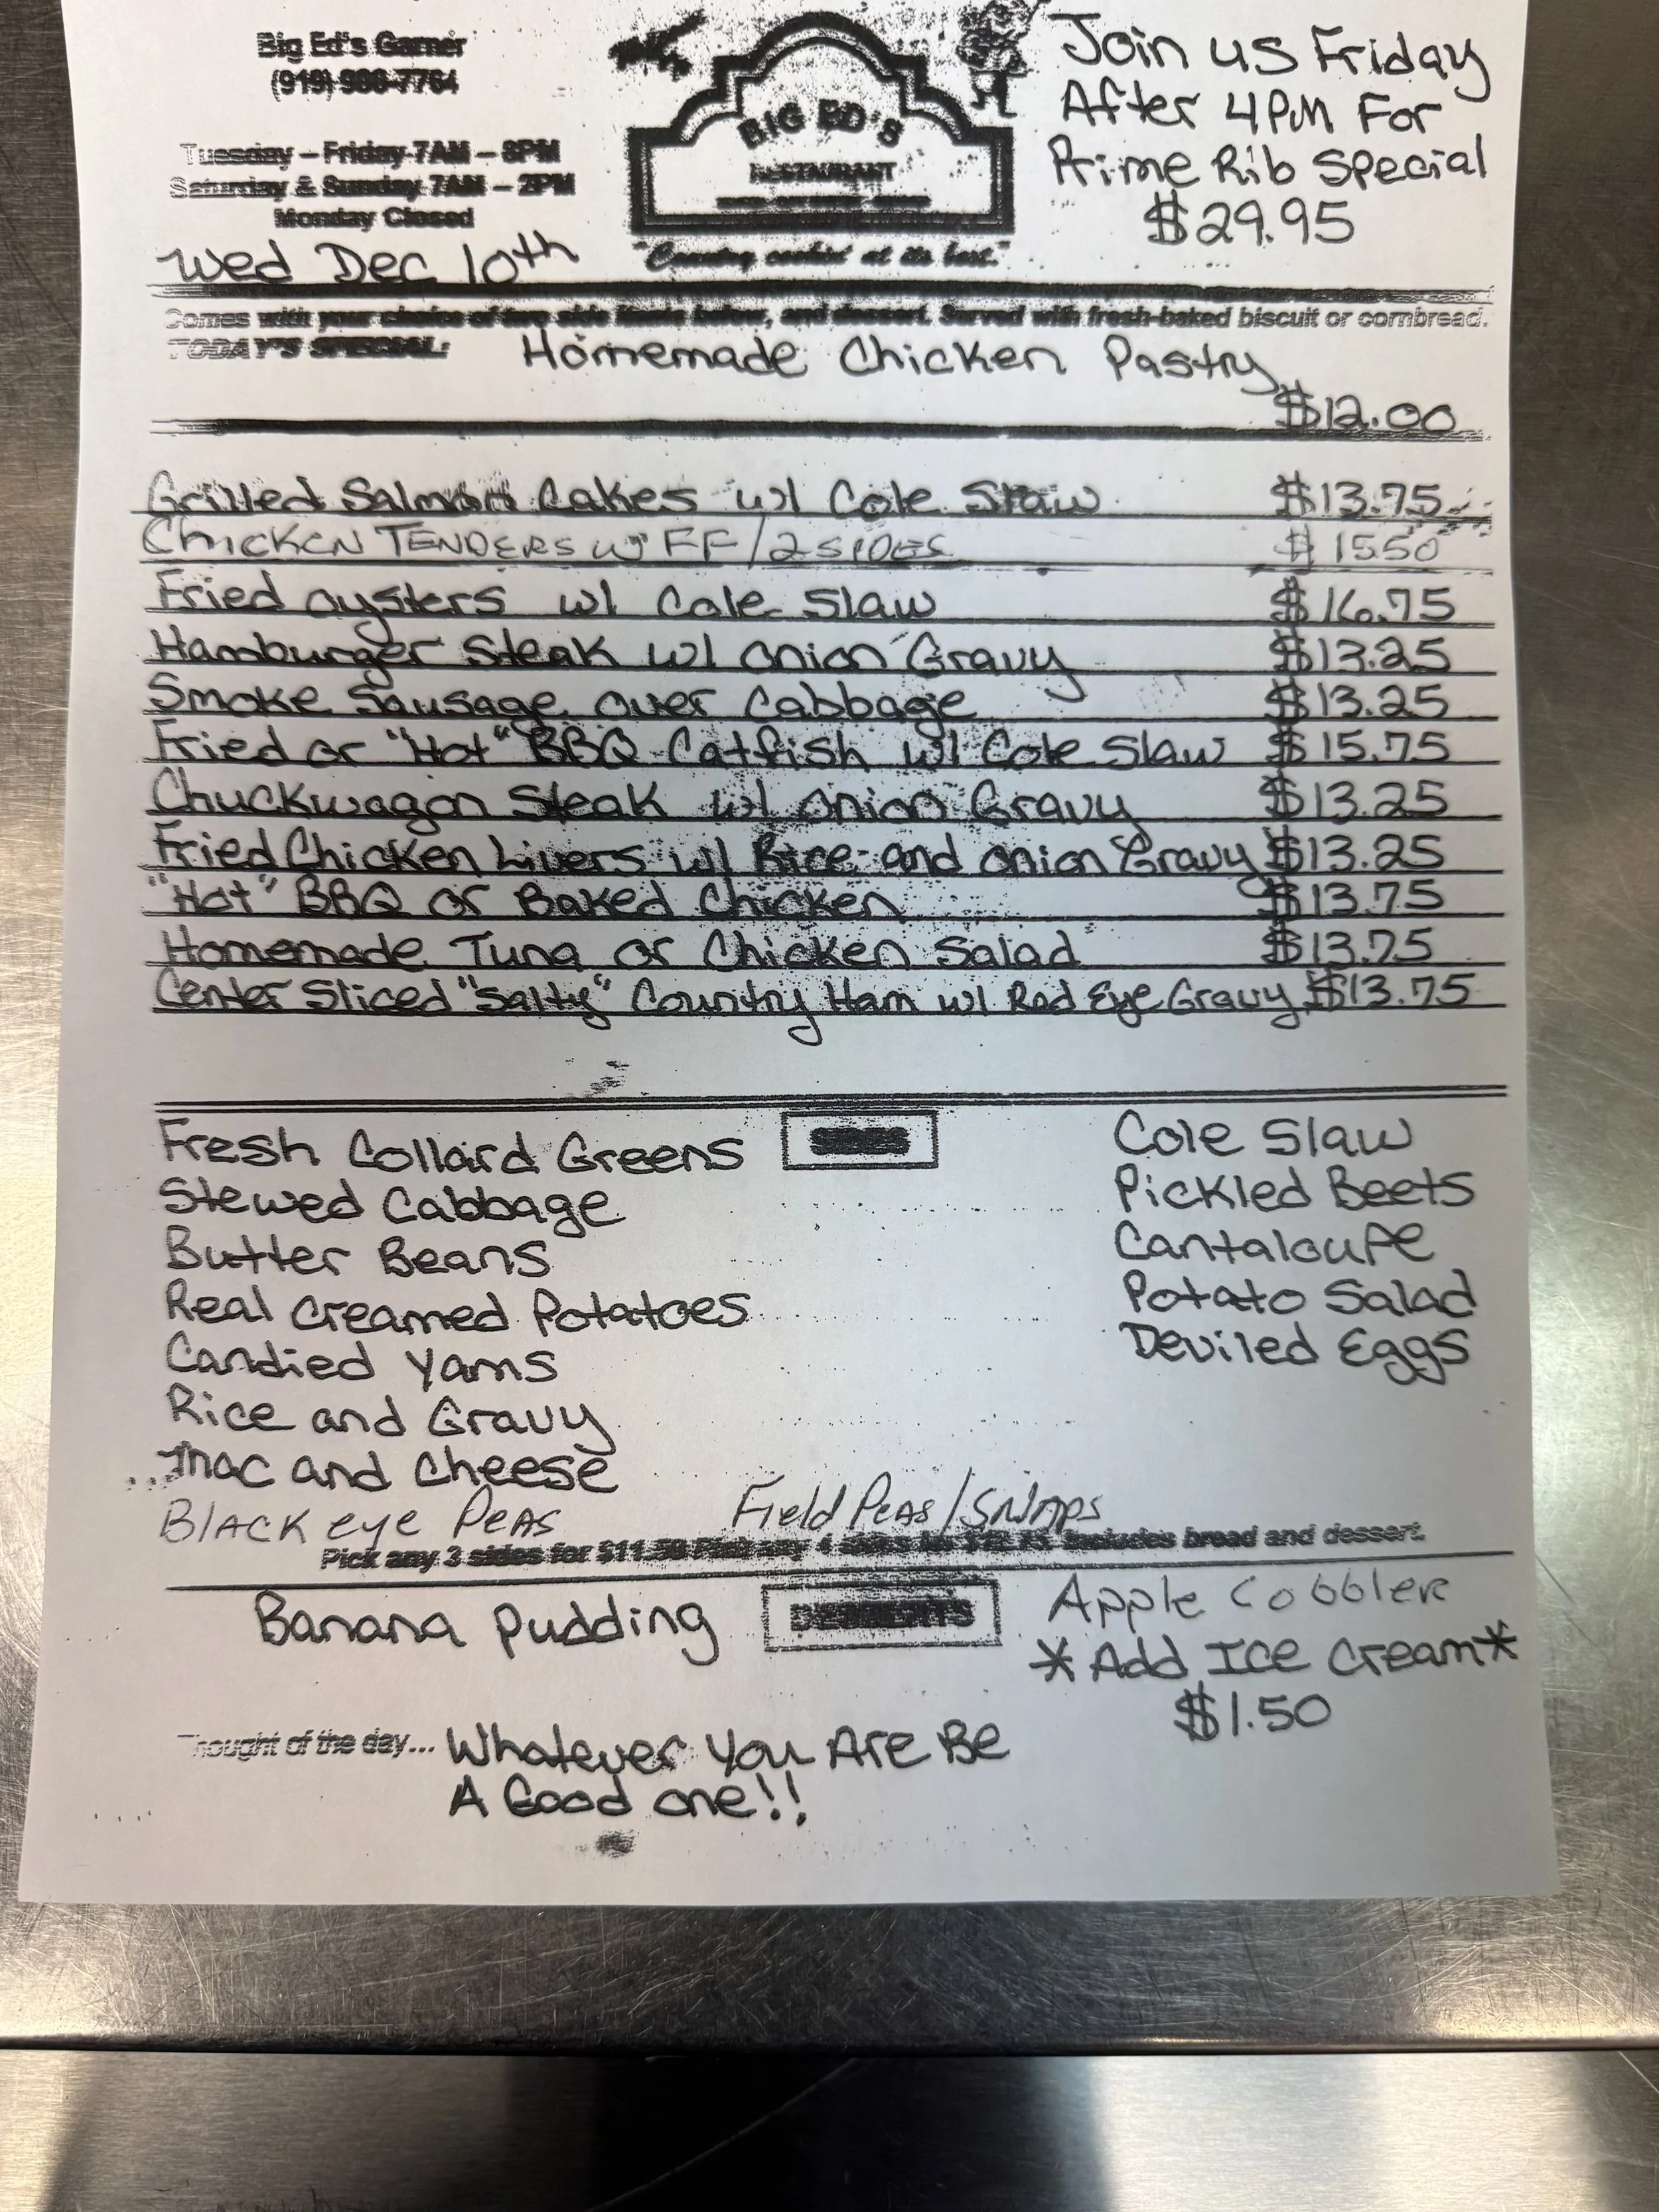 Big Ed's Garner
(919)
Tuesday – Friday 7AM – 8PM
Saturday & Sunday 7AM – 2PM
Monday Closed
Wed Dec 10th
BIG ED'S
RESTAURANT
"Country cookin' at its best."
Join us Friday
After 4PM For
Prime Rib Special
$29.95
Comes with your choice of two side items below, and dessert. Served with fresh-baked biscuit or cornbread.
TODAY'S SPECIAL: Homemade Chicken Pastry
$12.00
Grilled Salmon Cakes w/ Cole Slaw $13.75
CHICKEN TENDERS w/ FF/2 SIDES $15.50
Fried oysters w/ Cole Slaw $16.75
Hamburger Steak w/ onion Gravy $13.25
Smoke Sausage over Cabbage $13.25
Fried or "Hot" BBQ Catfish w/ Cole Slaw $15.75
Chuckwagon Steak w/ onion Gravy $13.25
Fried Chicken Livers w/ Rice and onion Gravy $13.25
"Hot" BBQ or Baked Chicken $13.75
Homemade Tuna or Chicken Salad $13.75
Center Sliced "Salty" Country Ham w/ Red Eye Gravy $13.75
SIDES
Fresh Collard Greens
Stewed Cabbage
Butter Beans
Real Creamed Potatoes
Candied Yams
Rice and Gravy
Mac and Cheese
Black eye Peas
Field Peas/Snaps
Cole Slaw
Pickled Beets
Cantaloupe
Potato Salad
Deviled Eggs
Pick any 3 sides for $11.50 Pick any 4 sides includes bread and dessert.
DESSERTS
Banana Pudding
Apple Cobbler
*Add Ice Cream*
$1.50
Thought of the day... Whatever You Are Be
A Good one!!